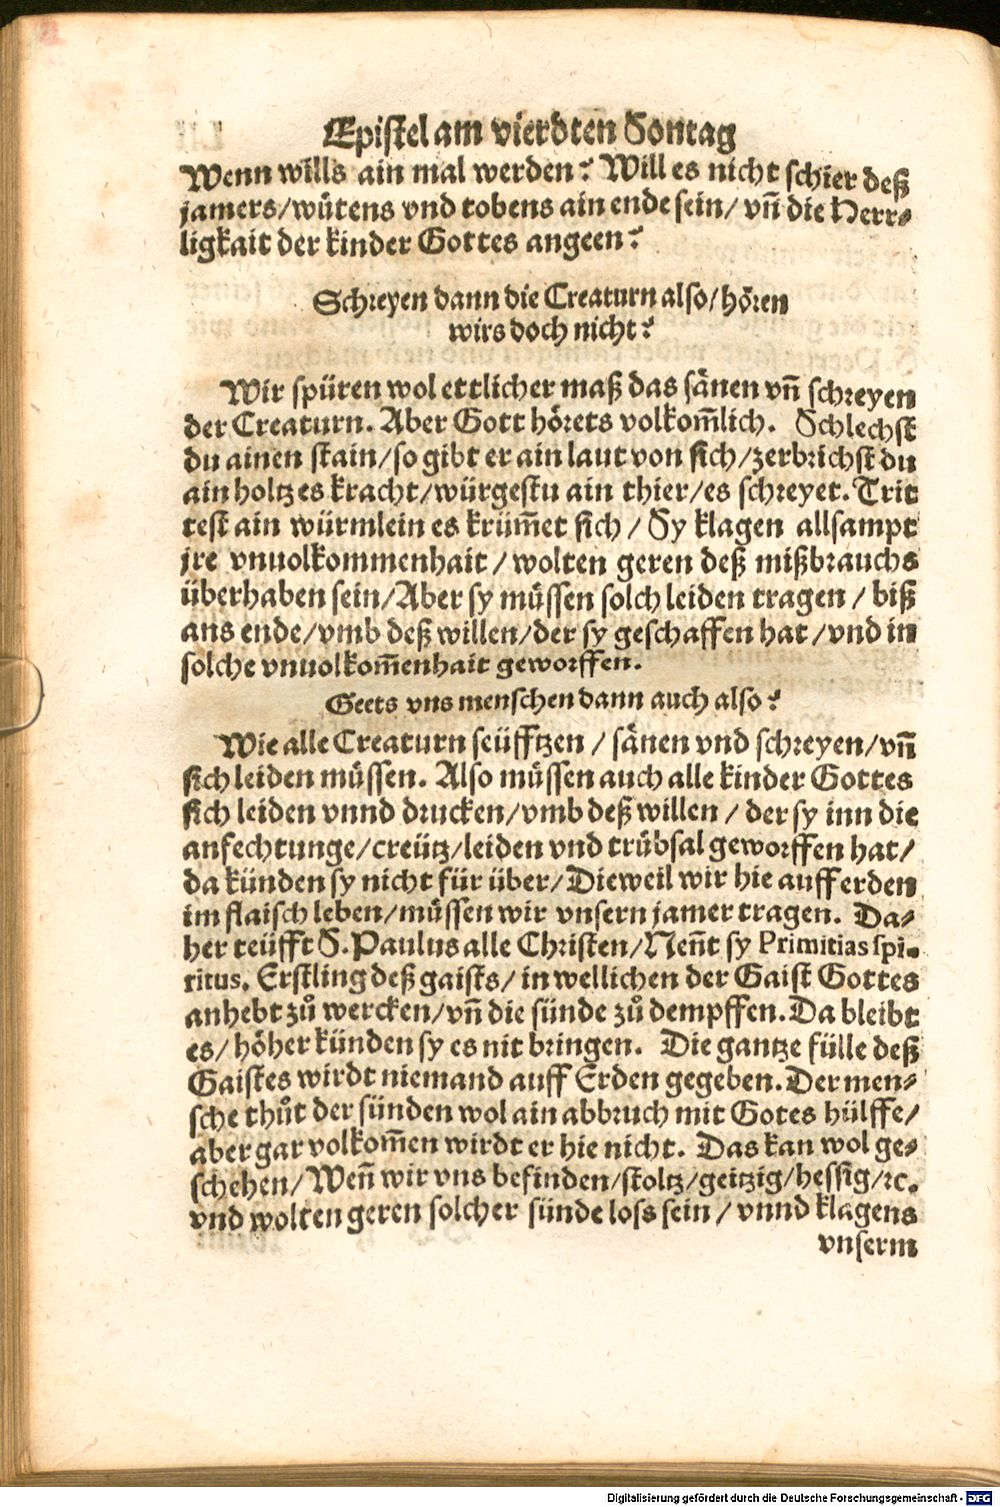 Epistel am vierdten Sontag
Wenn wills ain mal werden? Will es nicht schier deß
jamers/wůtens vnd tobens ain ende sein/ vñ die Herr-
ligkait der kinder Gottes angeen?
Schreyen dann die Creaturn also/hören
wirs doch nicht?
Wir spüren wol ettlicher maß das sänen vñ schreyen
der Creaturn. Aber Gott hörets volkom̃lich. Schlechst
du ainen stain/so gibt er ain laut von sich/zerbrichst du
ain holtz es kracht/würgestu ain thier/es schreyet. Trit
test ain würmlein es krüm̃et sich/ Sy klagen allsampt
jre vnuolkommenhait/wolten geren deß mißbrauchs
überhaben sein/Aber sy müssen solch leiden tragen/ biß
ans ende/vmb deß willen/der sy geschaffen hat/vnd in
solche vnuolkom̃enhait geworffen.
Geets vns menschen dann auch also?
Wie alle Creaturn seüfftzen/ sänen vnd schreyen/vñ
sich leiden müssen. Also müssen auch alle kinder Gottes
sich leiden vnnd drucken/vmb deß willen/ der sy inn die
anfechtunge/creütz/leiden vnd trübsal geworffen hat/
da künden sy nicht für über/Dieweil wir hie auff erden
im flaisch leben/müssen wir vnsern jamer tragen. Da-
her teüfft S. Paulus alle Christen/Neñt sy Primitias spi-
ritus. Erstling deß gaists/ in wellichen der Gaist Gottes
anhebt zů wercken/vñ die sünde zů dempffen. Da bleibt
es/höher künden sy es nit bringen. Die gantze fülle deß
Gaistes wirdt niemand auff Erden gegeben. Der men-
sche thůt der sünden wol ain abbruch mit Gotes hülffe/
aber gar volkom̃en wirdt er hie nicht. Das kan wol ge-
schehen/Weñ wir vns befinden/stoltz/geitzig/hessig/ꝛc.
vnd wolten geren solcher sünde loss sein/vnnd klagens
vnserm
Digitalisierung gefördert durch die Deutsche Forschungsgemeinschaft - DFG